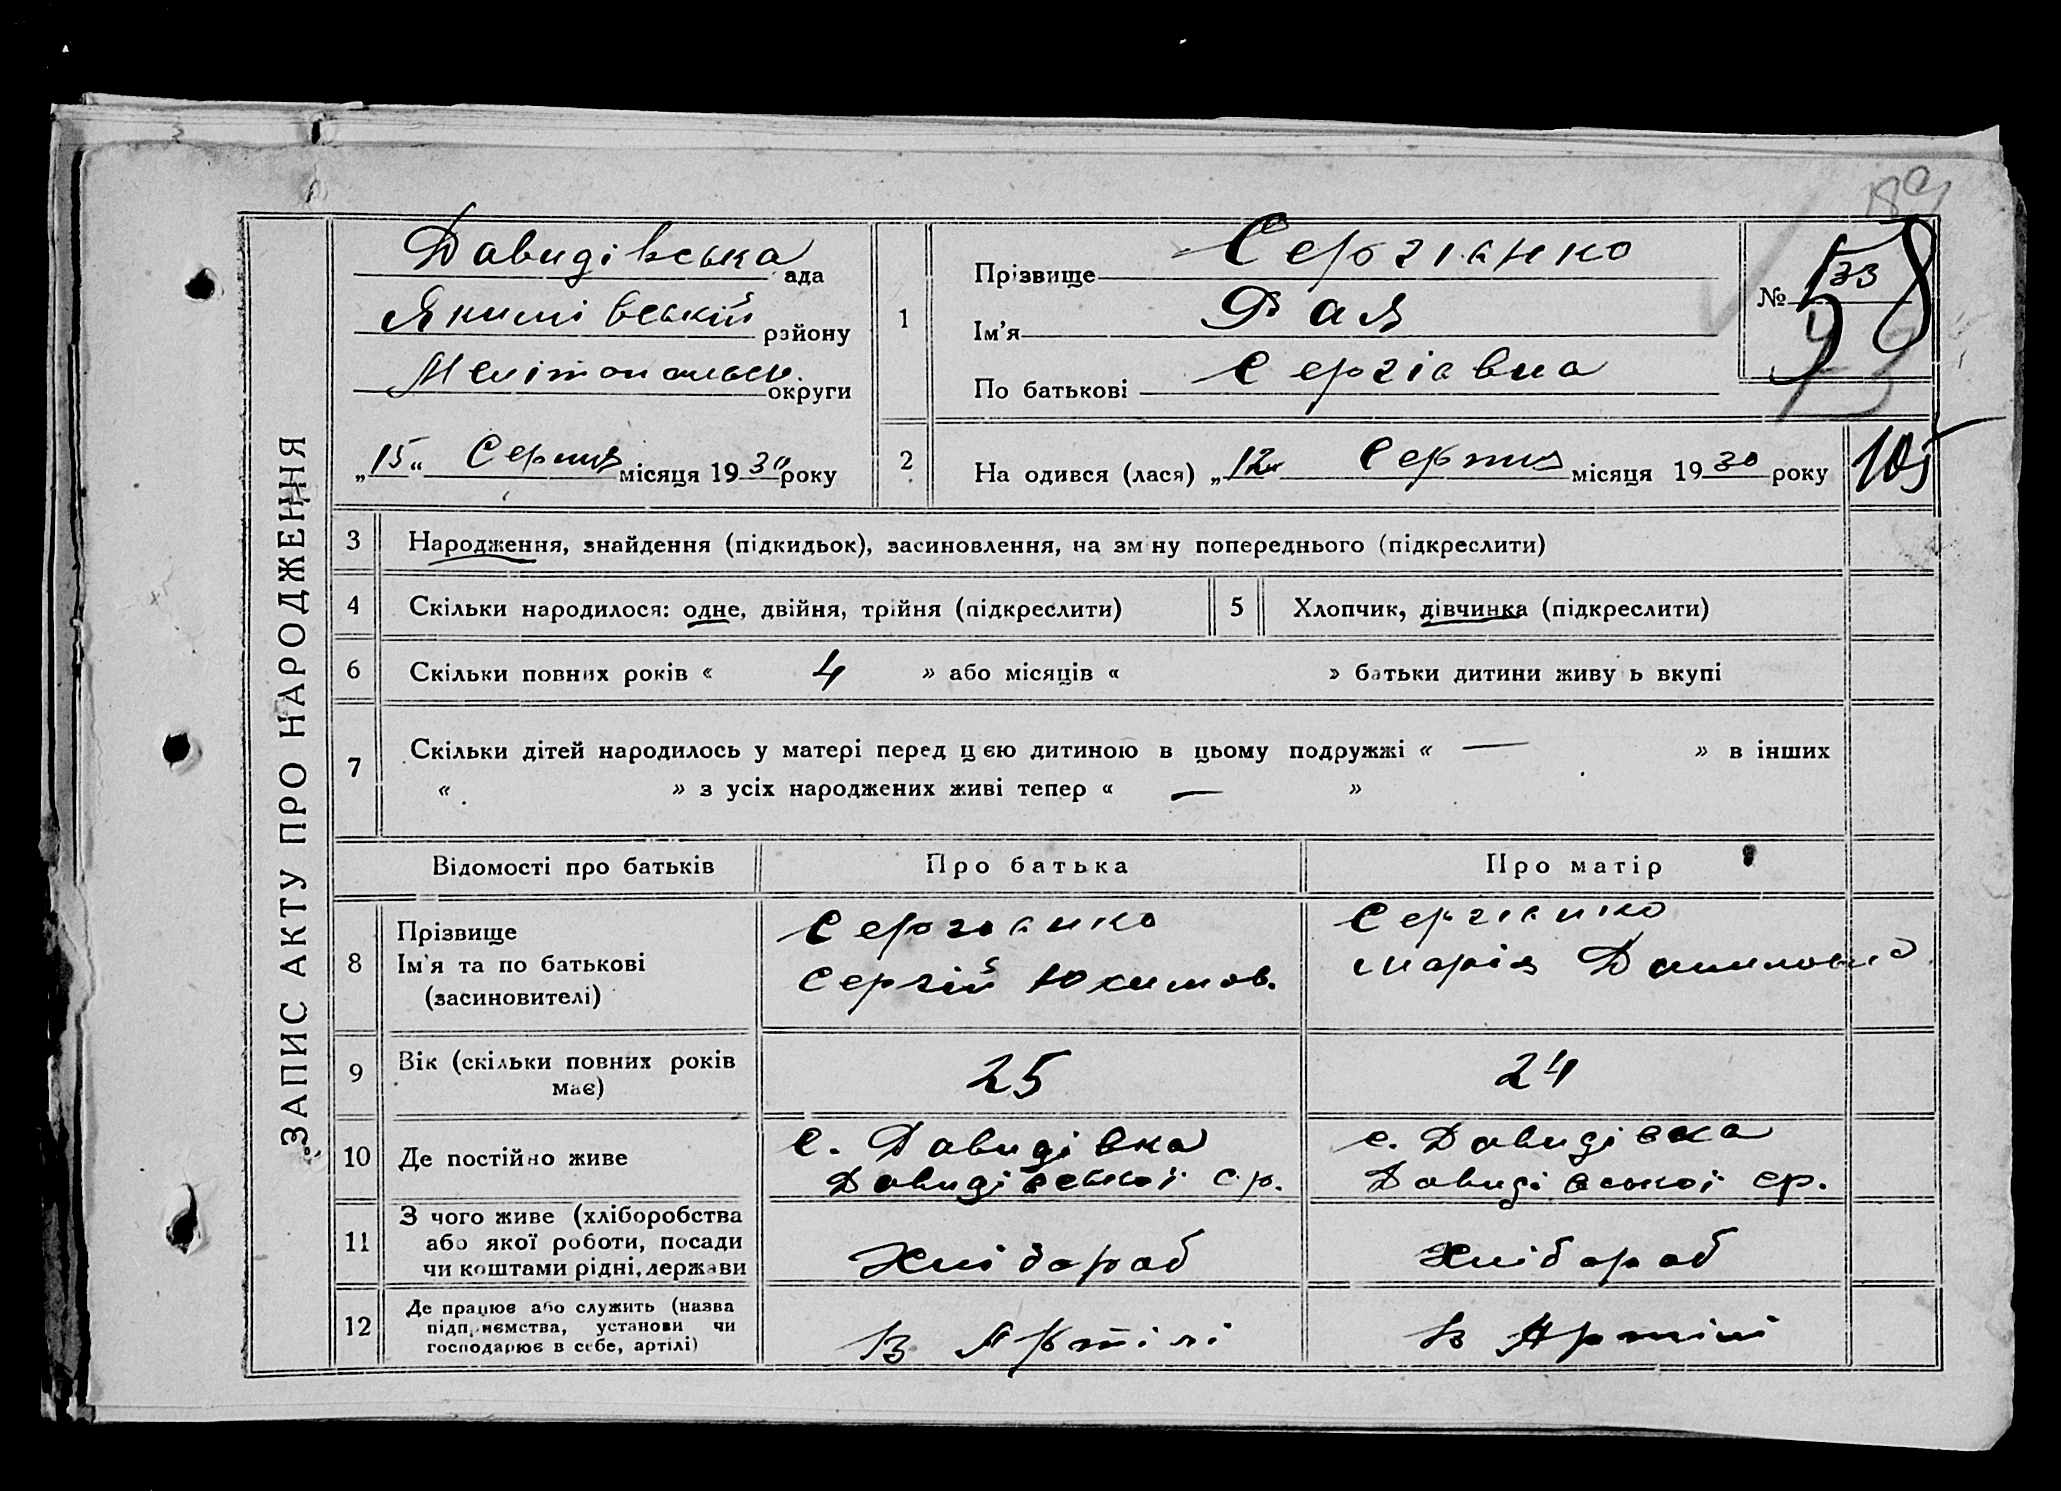 ЗАПИС АКТУ ПРО НАРОДЖЕННЯ
Давидівська ада
Якимівський району
Мелітопольськ. округи
„15“ Серпня місяця 1930 року
1
Прізвище Сергіанко
Ім’я Рая
По батькові Сергіавна
№ 133
58
2
На одився (лася) „12“ Серпня місяця 1930 року
105
3 Народження, знайдення (підкидьок), засиновлення, на зм ну попереднього (підкреслити)
4 Скільки народилося: одне, двійня, трійня (підкреслити)
5 Хлопчик, дівчинка (підкреслити)
6 Скільки повних років « 4 » або місяців « » батьки дитини живу ь вкупі
7 Скільки дітей народилось у матері перед цією дитиною в цьому подружжі « — » в інших
« » з усіх народжених живі тепер « — »
Відомості про батьків Про батька Про матір
8 Прізвище
Ім’я та по батькові
(засиновителі)
Сергіанко
Сергій Юхимов.
Сергіанко
Марія Даниловна
9 Вік (скільки повних років
має)
25
24
10 Де постійно живе
с. Давидівка
Давидівської с.р.
с. Давидівка
Давидівської ср.
11 З чого живе (хліборобства
або якої роботи, посади
чи коштами рідні, держави
Хлібороб
Хлібороб
12 Де працює або служить (назва
підприємства, установи чи
господарює в себе, артілі)
В Артілі
В Артілі